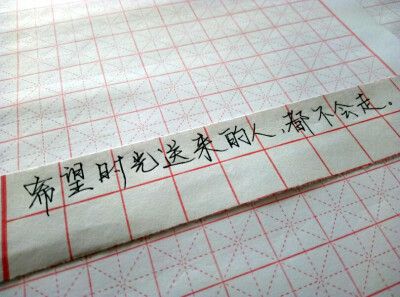 希望时光送来的人,都不会走.